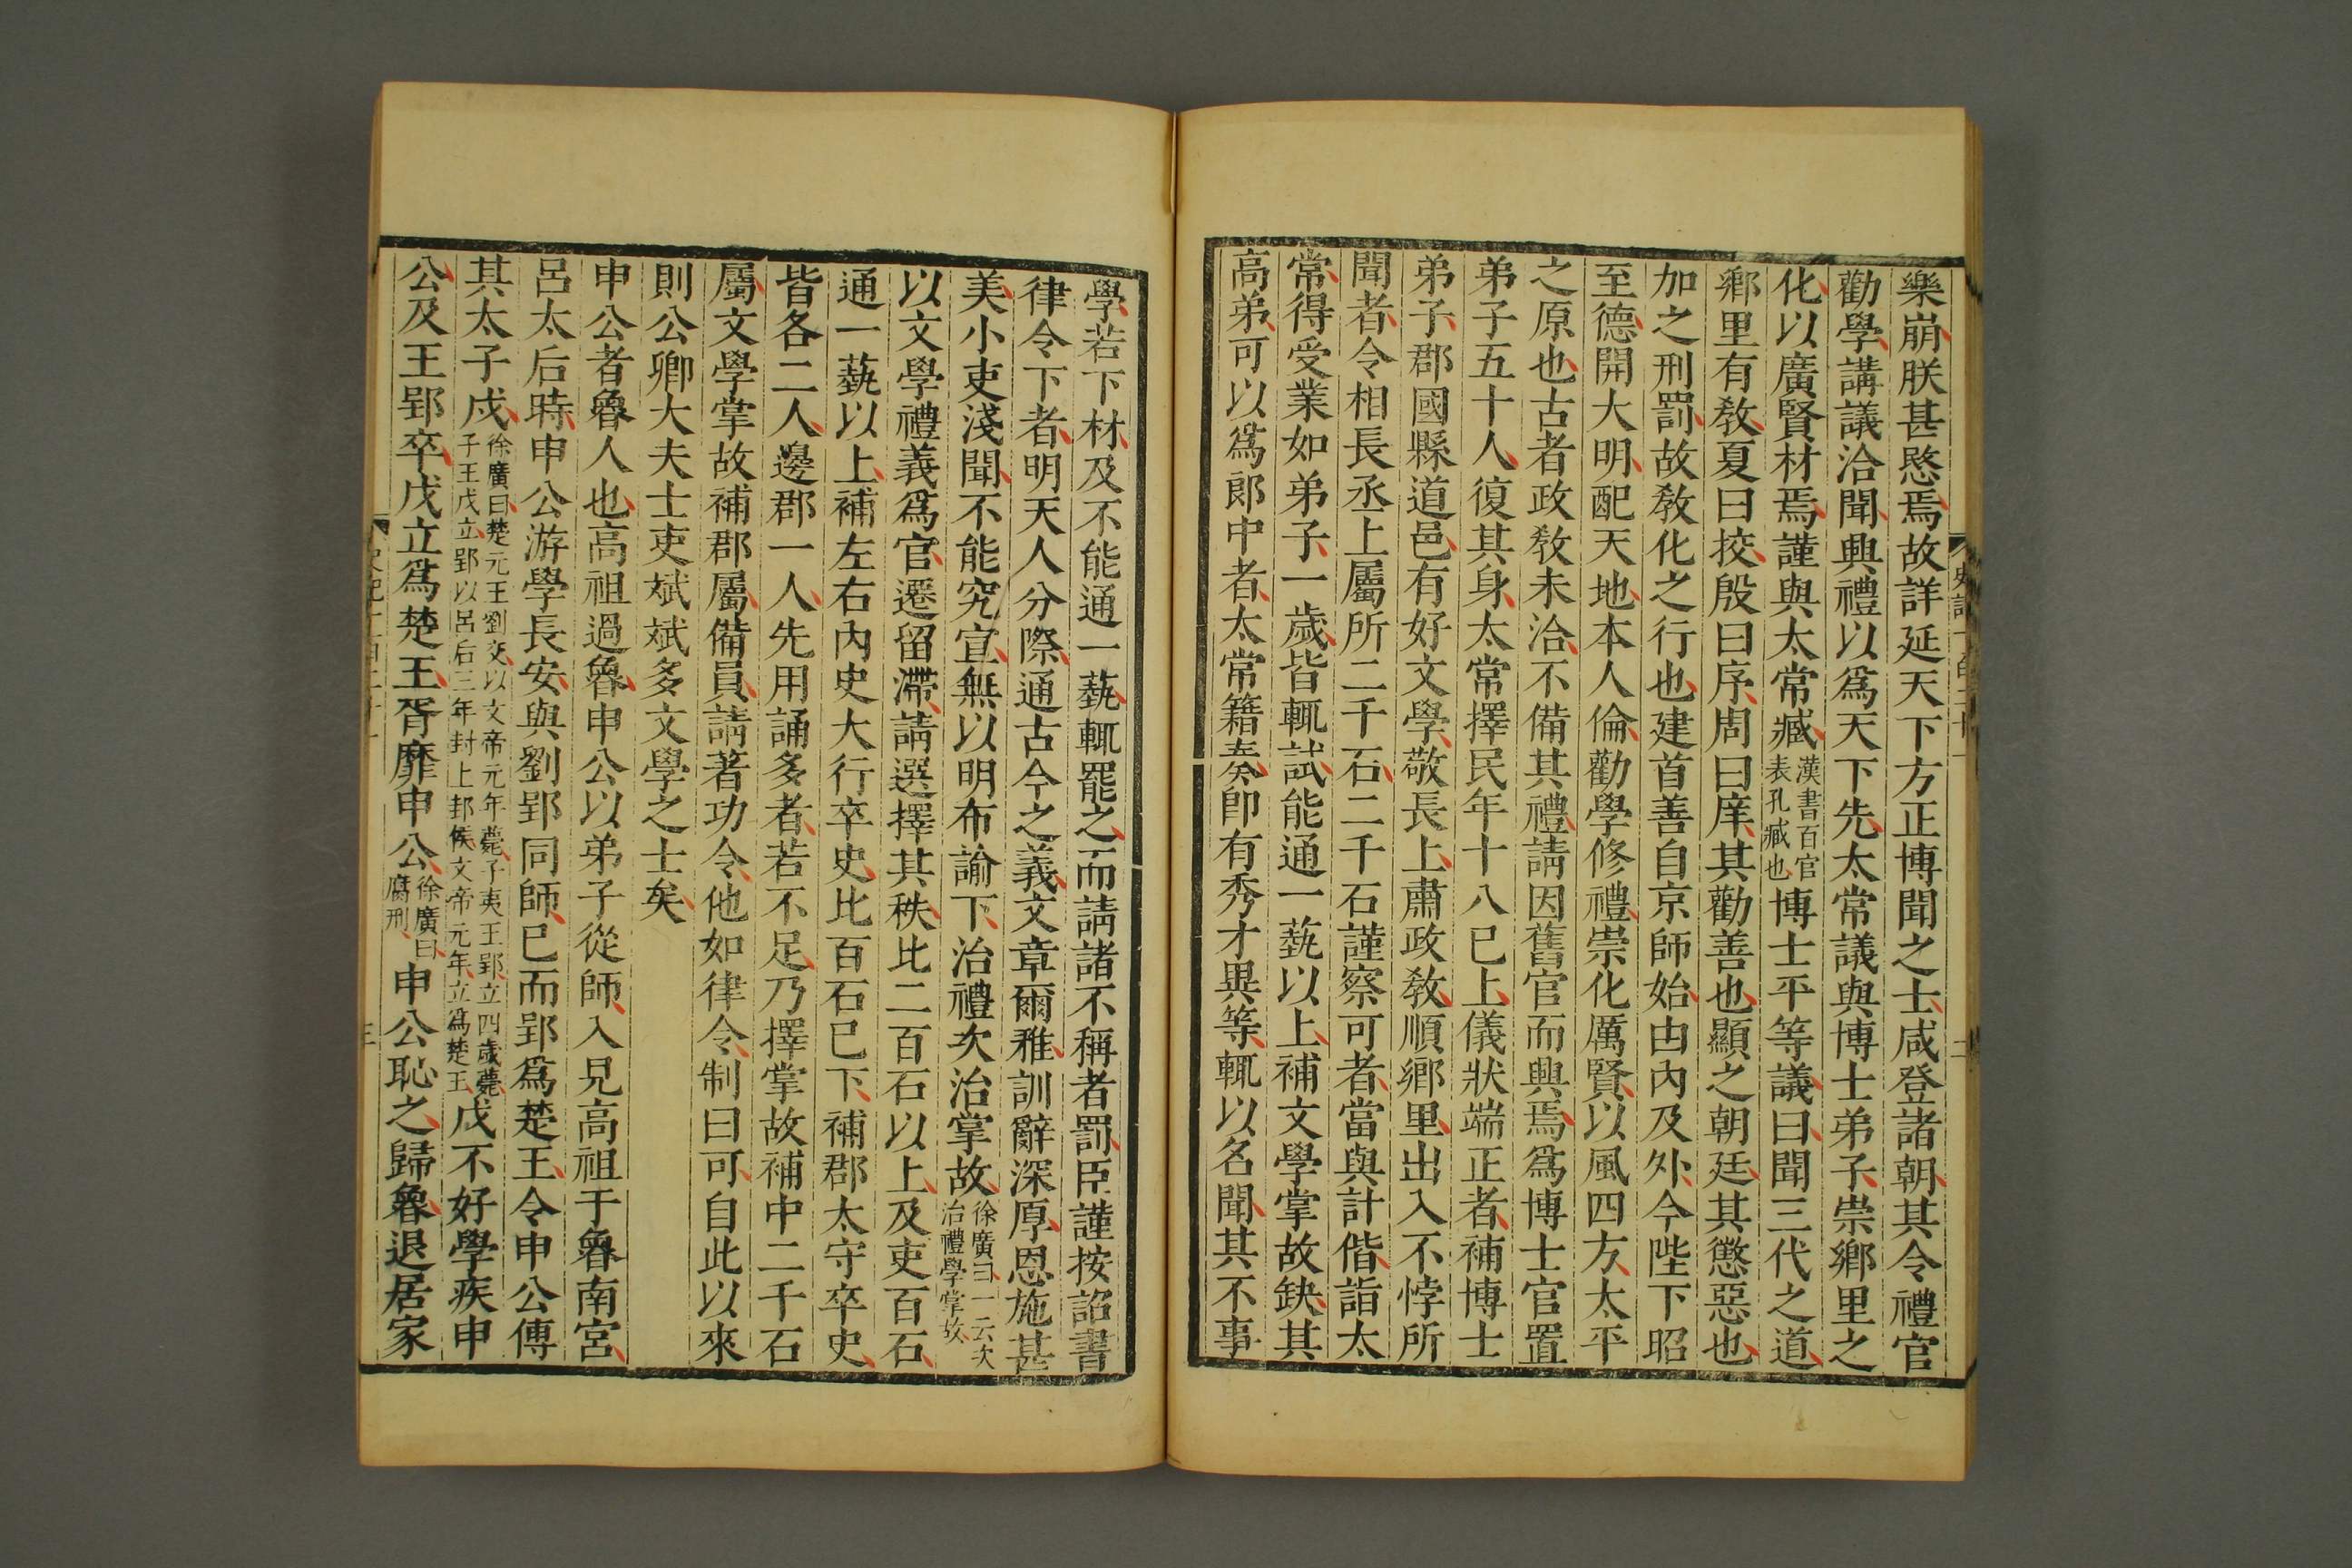 樂崩朕甚愍焉故詳延天下方正博聞之士咸登諸朝其令禮官
勸學講議洽聞興禮以爲天下先太常議與博士弟子崇鄉里之
化以廣賢材焉謹與太常臧漢書百官表孔臧也博士平等議曰聞三代之道
鄉里有教夏曰挍殷曰序周曰庠其勸善也顯之朝廷其懲惡也
加之刑罰故教化之行也建首善自京師始由內及外今陛下昭
至德開大明配天地本人倫勸學修禮崇化厲賢以風四方太平
之原也古者政教未洽不備其禮請因舊官而興焉爲博士官置
弟子五十人復其身太常擇民年十八已上儀狀端正者補博士
弟子郡國縣道邑有好文學敬長上肅政教順鄉里出入不悖所
聞者令相長丞上屬所二千石二千石謹察可者當與計偕詣太
常得受業如弟子一歲皆輒試能通一藝以上補文學掌故缺其
高弟可以爲郎中者太常籍奏即有秀才異等輒以名聞其不事
學若下材及不能通一藝輒罷之而請諸不稱者罰臣謹按詔書
律令下者明天人分際通古今之義文章爾雅訓辭深厚恩施甚
美小吏淺聞不能究宣無以明布諭下治禮次治掌故徐廣曰一云次治禮學掌故
以文學禮義爲官遷留滯請選擇其秩比二百石以上及吏百石
通一藝以上補左右內史大行卒史比百石已下補郡太守卒史
皆各二人邊郡一人先用誦多者若不足乃擇掌故補中二千石
屬文學掌故補郡屬備員請著功令他如律令制曰可自此以來
則公卿大夫士吏斌斌多文學之士矣
申公者魯人也高祖過魯申公以弟子從師入見高祖于魯南宮
呂太后時申公游學長安與劉郢同師已而郢爲楚王令申公傅
其太子戊徐廣曰楚元王劉交以文帝元年薨子夷王郢立四歲薨子王戊立郢以呂后二年封上邳候文帝元年立爲楚王戊不好學疾申
公及王郢卒戊立爲楚王胥靡申公徐廣曰腐刑申公恥之歸魯退居家